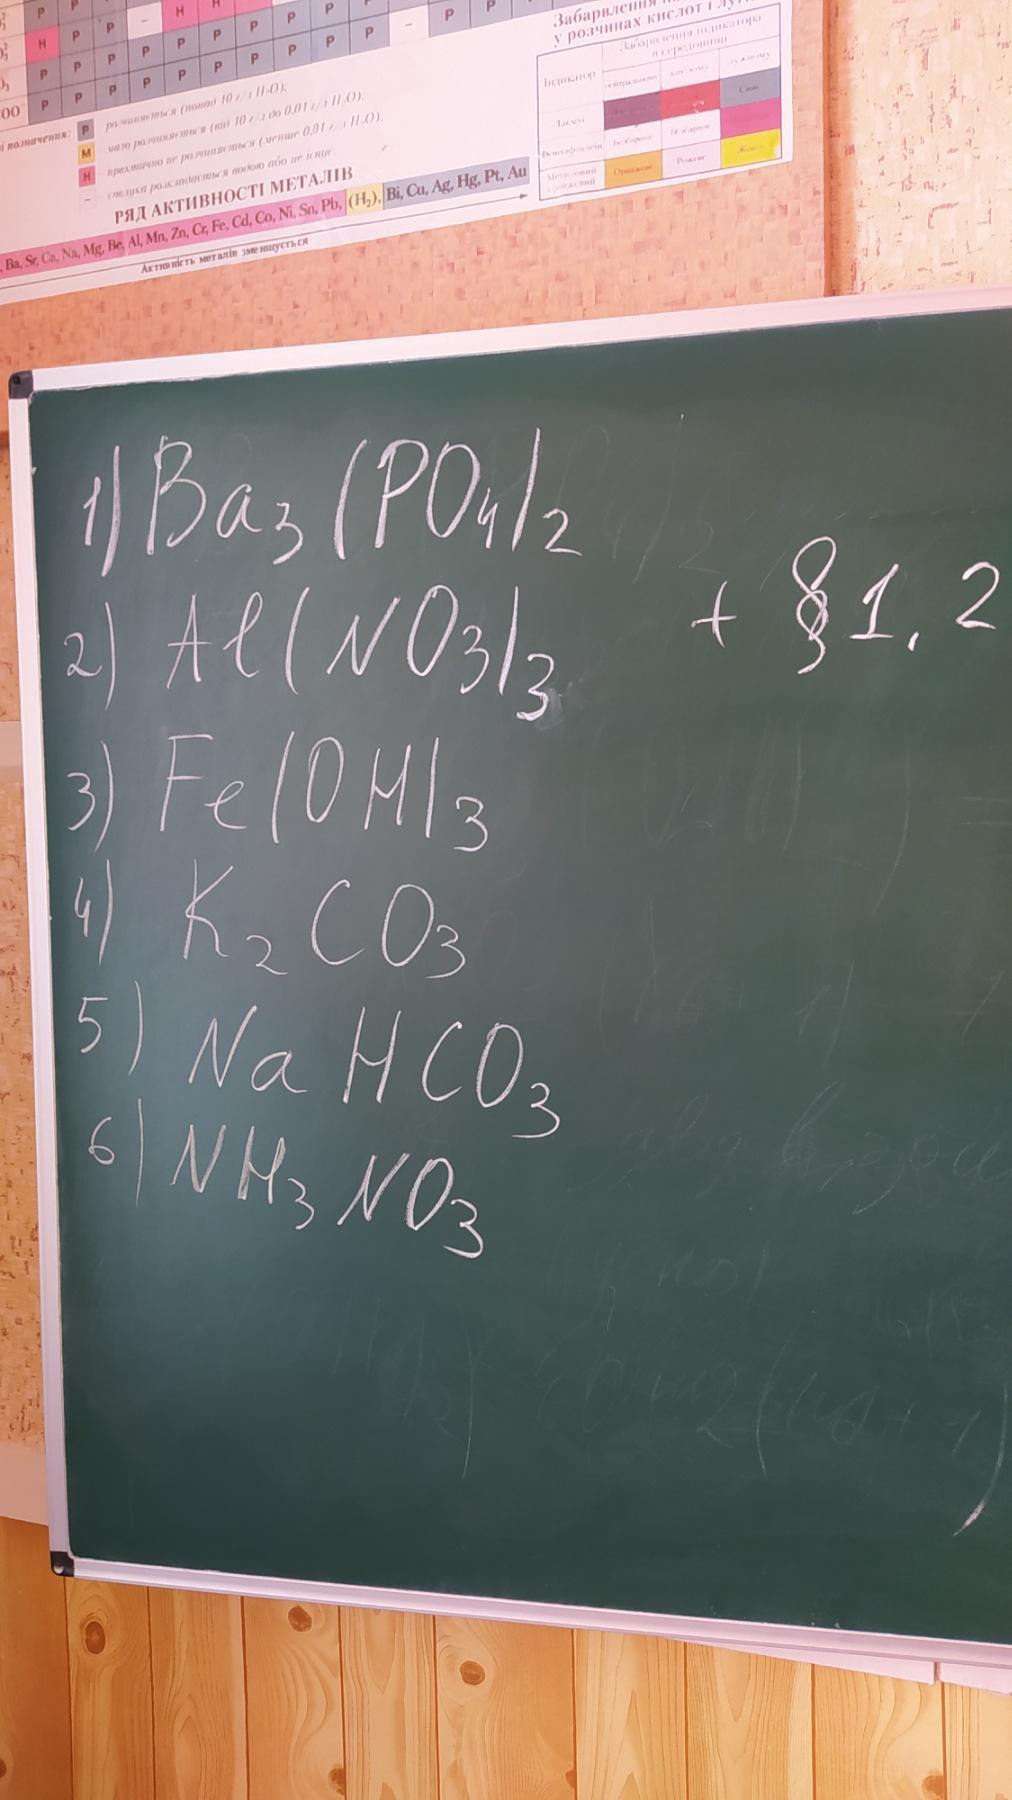 Н Н
Н Р Р –
Р Р Р Р Р Р Р Р Р – Р Р
Р Р Р Р Р Р Р
Забарвлення
у розчинах кислот і
Забарвлення індикатора
в середовищі
Індикатор нейтральному кислому лужному
Лакмус Синє
Безбарвне Безбарвне
Метиловий оранжевий Оранжеве Рожеве Жовте
позначення: Р розчиняється (понад 10 г/л H₂O);
М мало розчиняється (від 10 г/л до 0,01 г/л H₂O);
Н практично не розчиняється (менше 0,01 г/л H₂O);
– сполука розкладається водою або не існує
РЯД АКТИВНОСТІ МЕТАЛІВ
, Ba, Sr, Ca, Na, Mg, Be, Al, Mn, Zn, Cr, Fe, Cd, Co, Ni, Sn, Pb, (H₂), Bi, Cu, Ag, Hg, Pt, Au
Активність металів зменшується
1) Ba₃(PO₄)₂
2) Al(NO₃)₃ + § 1, 2
3) Fe(OH)₃
4) K₂CO₃
5) NaHCO₃
6) NH₃NO₃